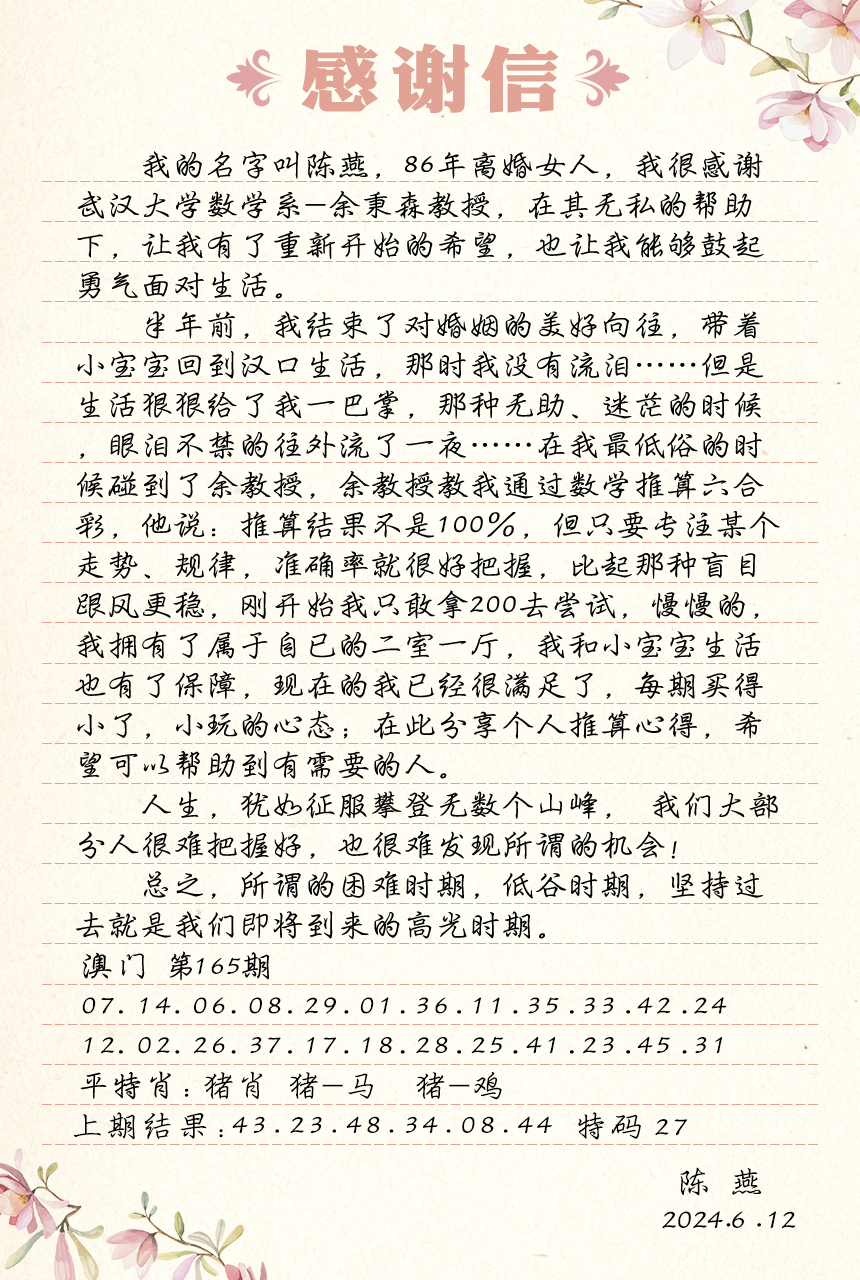 感谢信
我的名字叫陈燕，86年离婚女人，我很感谢
武汉大学数学系—余秉森教授，在其无私的帮助
下，让我有了重新开始的希望，也让我能够鼓起
勇气面对生活。
半年前，我结束了对婚姻的美好向往，带着
小宝宝回到汉口生活，那时我没有流泪……但是
生活狠狠给了我一巴掌，那种无助、迷茫的时候
，眼泪不禁的往外流了一夜……在我最低俗的时
候碰到了余教授，余教授教我通过数学推算六合
彩，他说：推算结果不是100%，但只要专注某个
走势、规律，准确率就很好把握，比起那种盲目
跟风更稳，刚开始我只敢拿200去尝试，慢慢的，
我拥有了属于自已的二室一厅，我和小宝宝生活
也有了保障，现在的我已经很满足了，每期买得
小了，小玩的心态；在此分享个人推算心得，希
望可以帮助到有需要的人。
人生，犹如征服攀登无数个山峰， 我们大部
分人很难把握好，也很难发现所谓的机会！
总之，所谓的困难时期，低谷时期，坚持过
去就是我们即将到来的高光时期。
澳门 第165期
07.14.06.08.29.01.36.11.35.33.42.24
12.02.26.37.17.18.28.25.41.23.45.31
平特肖：猪肖 猪—马 猪—鸡
上期结果：43.23.48.34.08.44 特码 27
陈 燕
2024.6.12